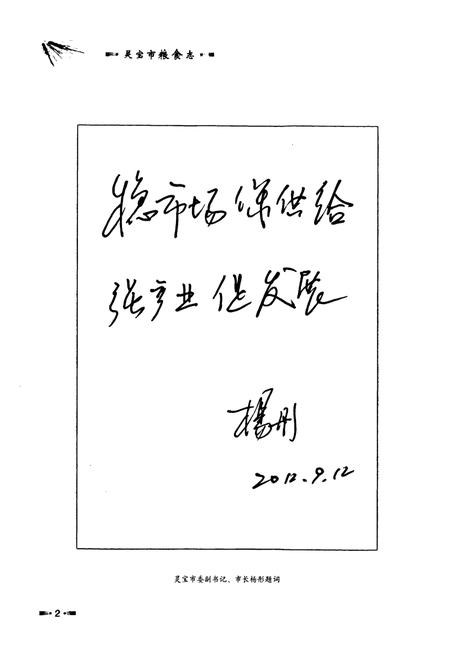 灵宝市粮食志
稳市场保供给
强产业促发展
杨彤
2012.9.12
灵宝市委副书记、市长杨彤题词
2